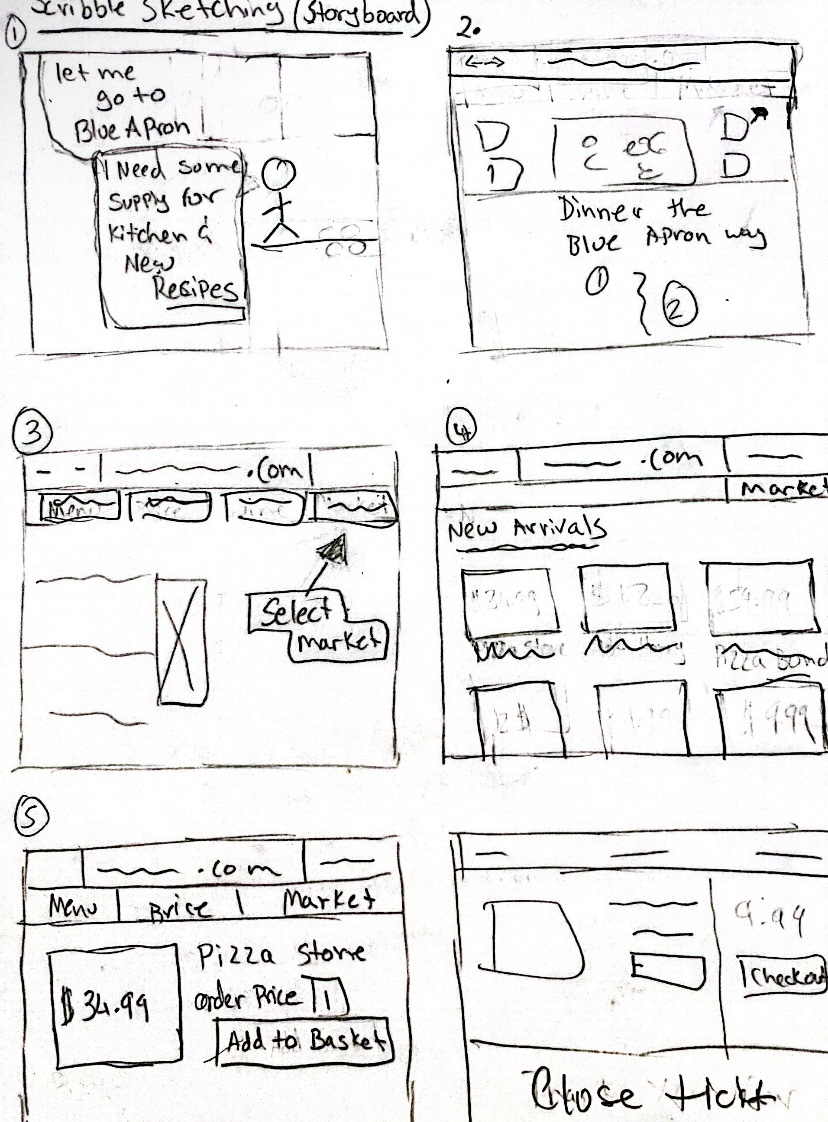 Scribble Sketching (Storyboard)
1
let me
go to
Blue Apron
I Need some
Supply for
Kitchen &
New
Resipes
2.
Dinner the
Blue Apron way
1
2
3
.com
Menu
Select
market
4
.com
Market
New Arrivals
Pizza
$ 9.99
5
.com
Menu | Brice | Market
$ 34.99
Pizza Stone
order Price 1
Add to Basket
9.99
Checkout